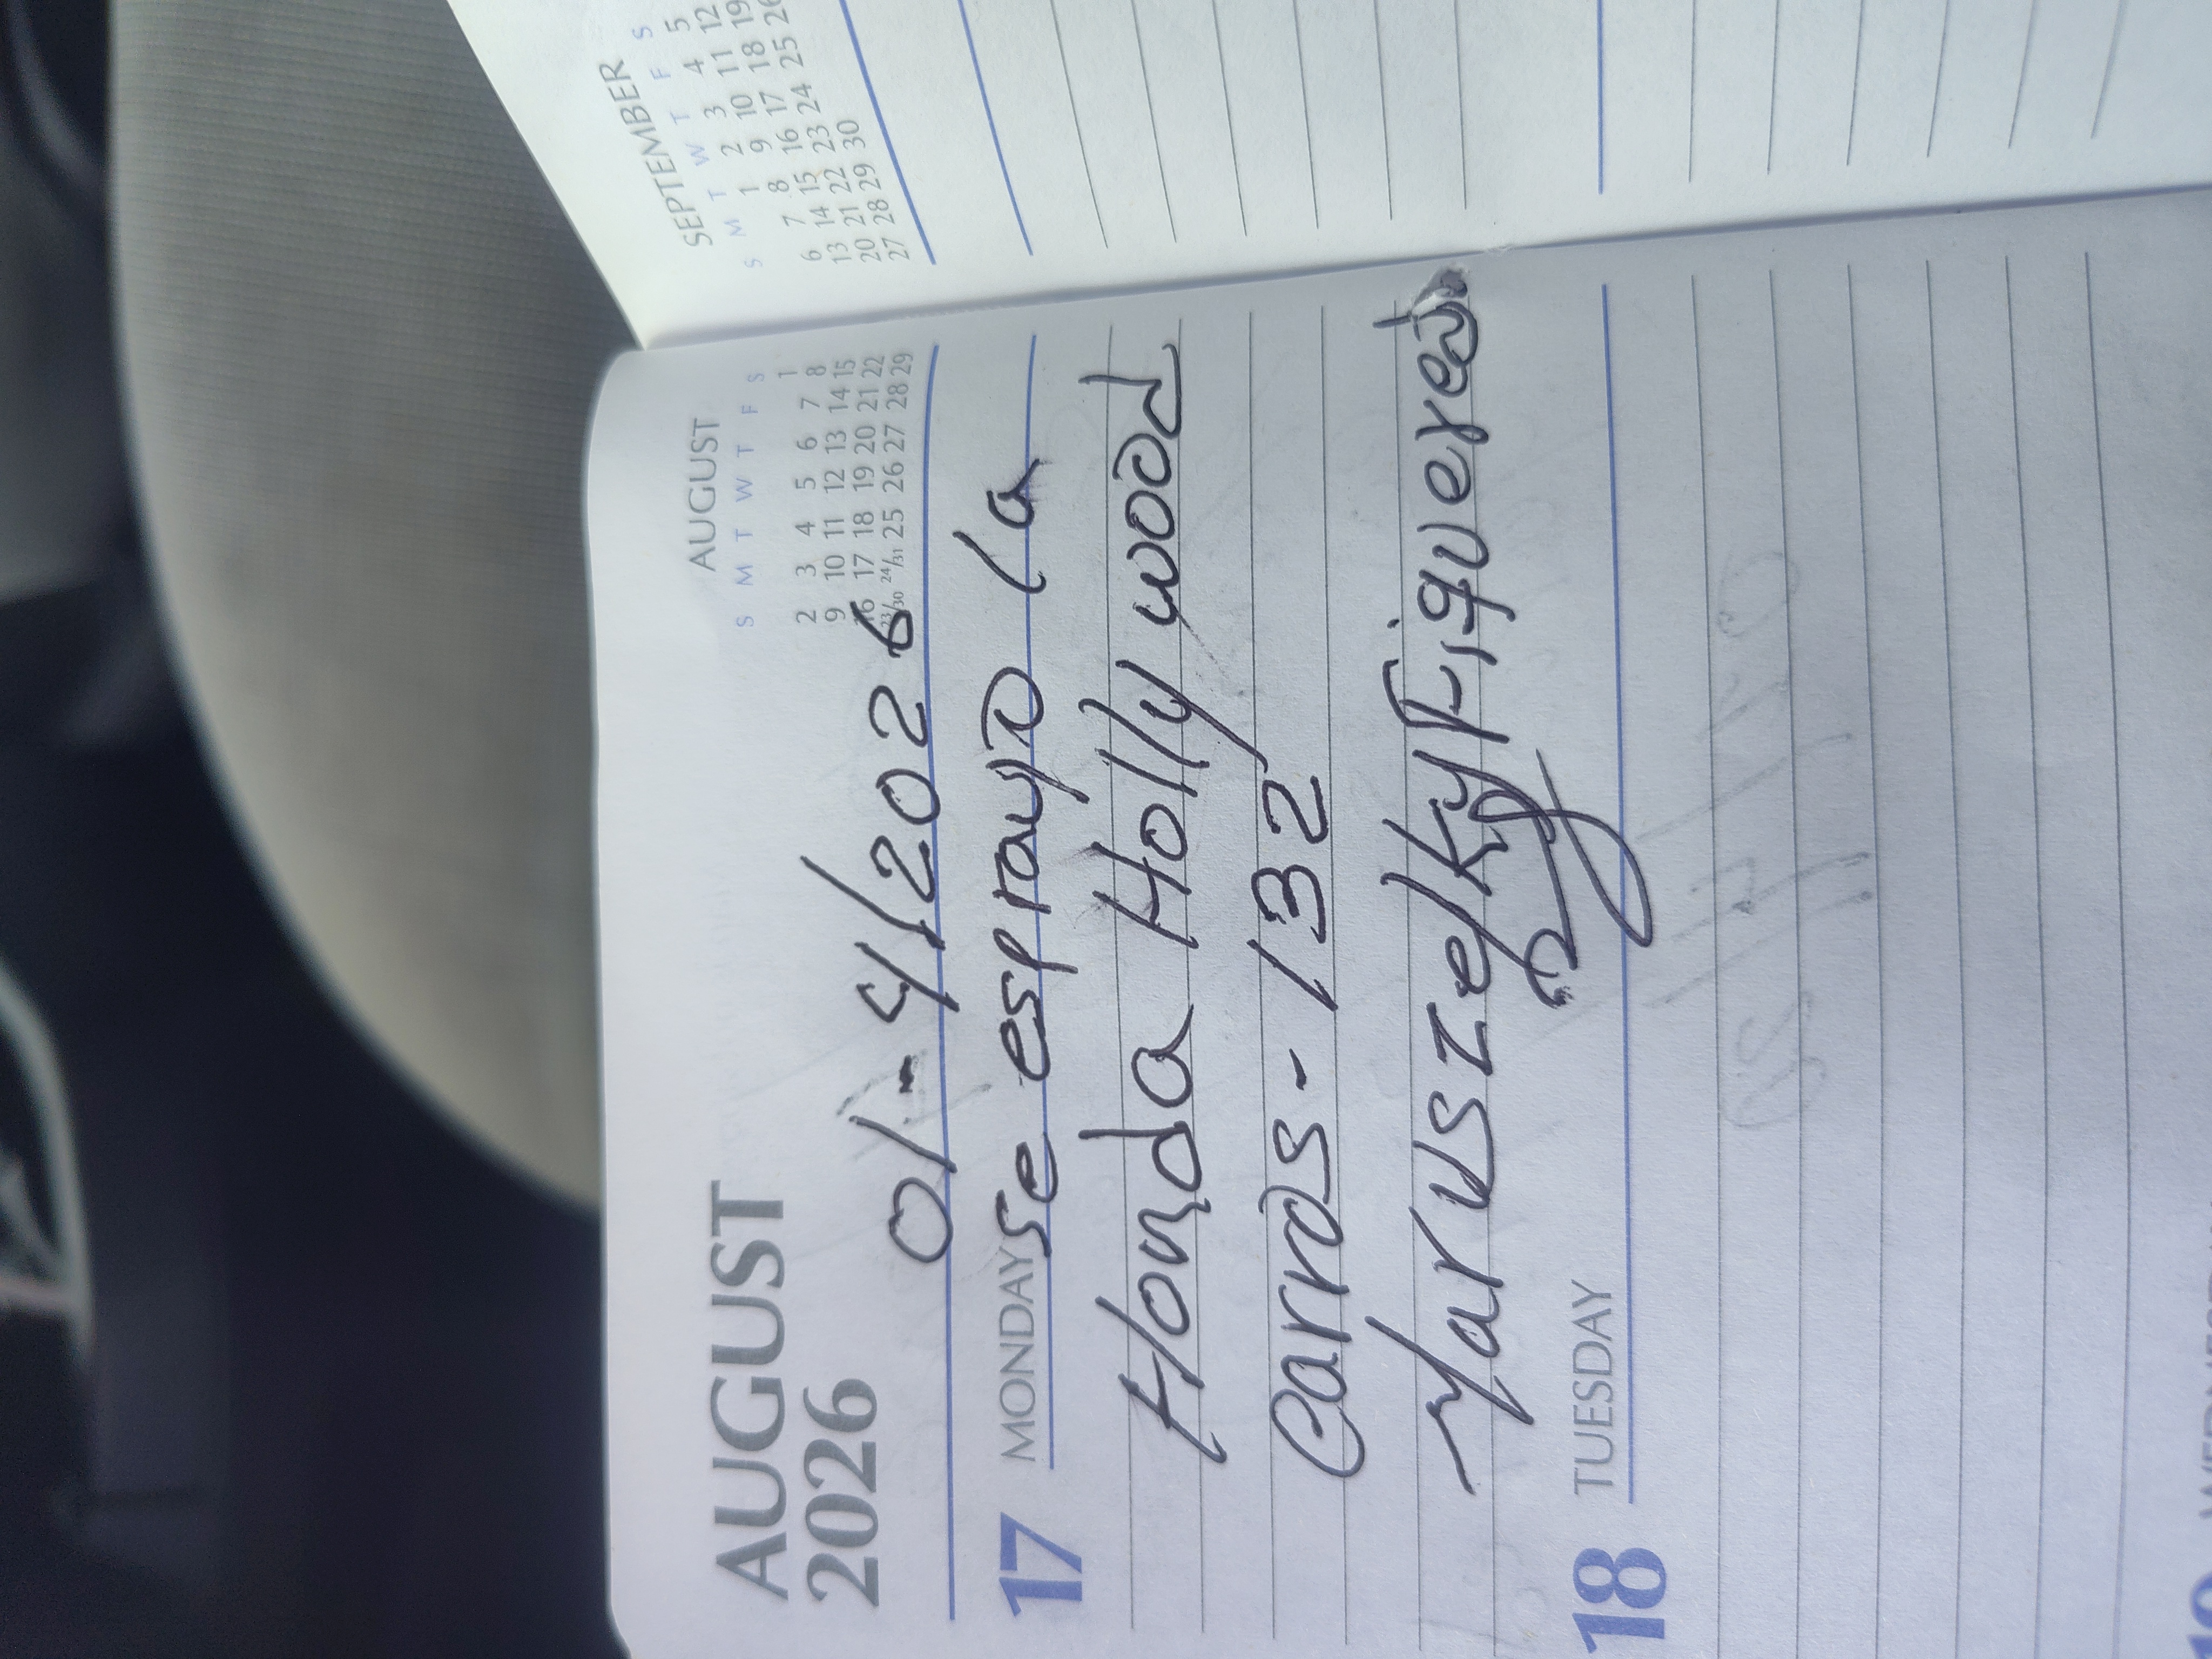 AUGUST
2026
AUGUST
S M T W T F S
1
2 3 4 5 6 7 8
9 10 11 12 13 14 15
16 17 18 19 20 21 22
23/30 24/31 25 26 27 28 29
01-4/2026
17 MONDAY se esprayo la
Honda Hollywood
Carros-132
Yaruszelky Figueredo
18 TUESDAY
SEPTEMBER
S M T W T F S
1 2 3 4 5
6 7 8 9 10 11 12
13 14 15 16 17 18 19
20 21 22 23 24 25 26
27 28 29 30